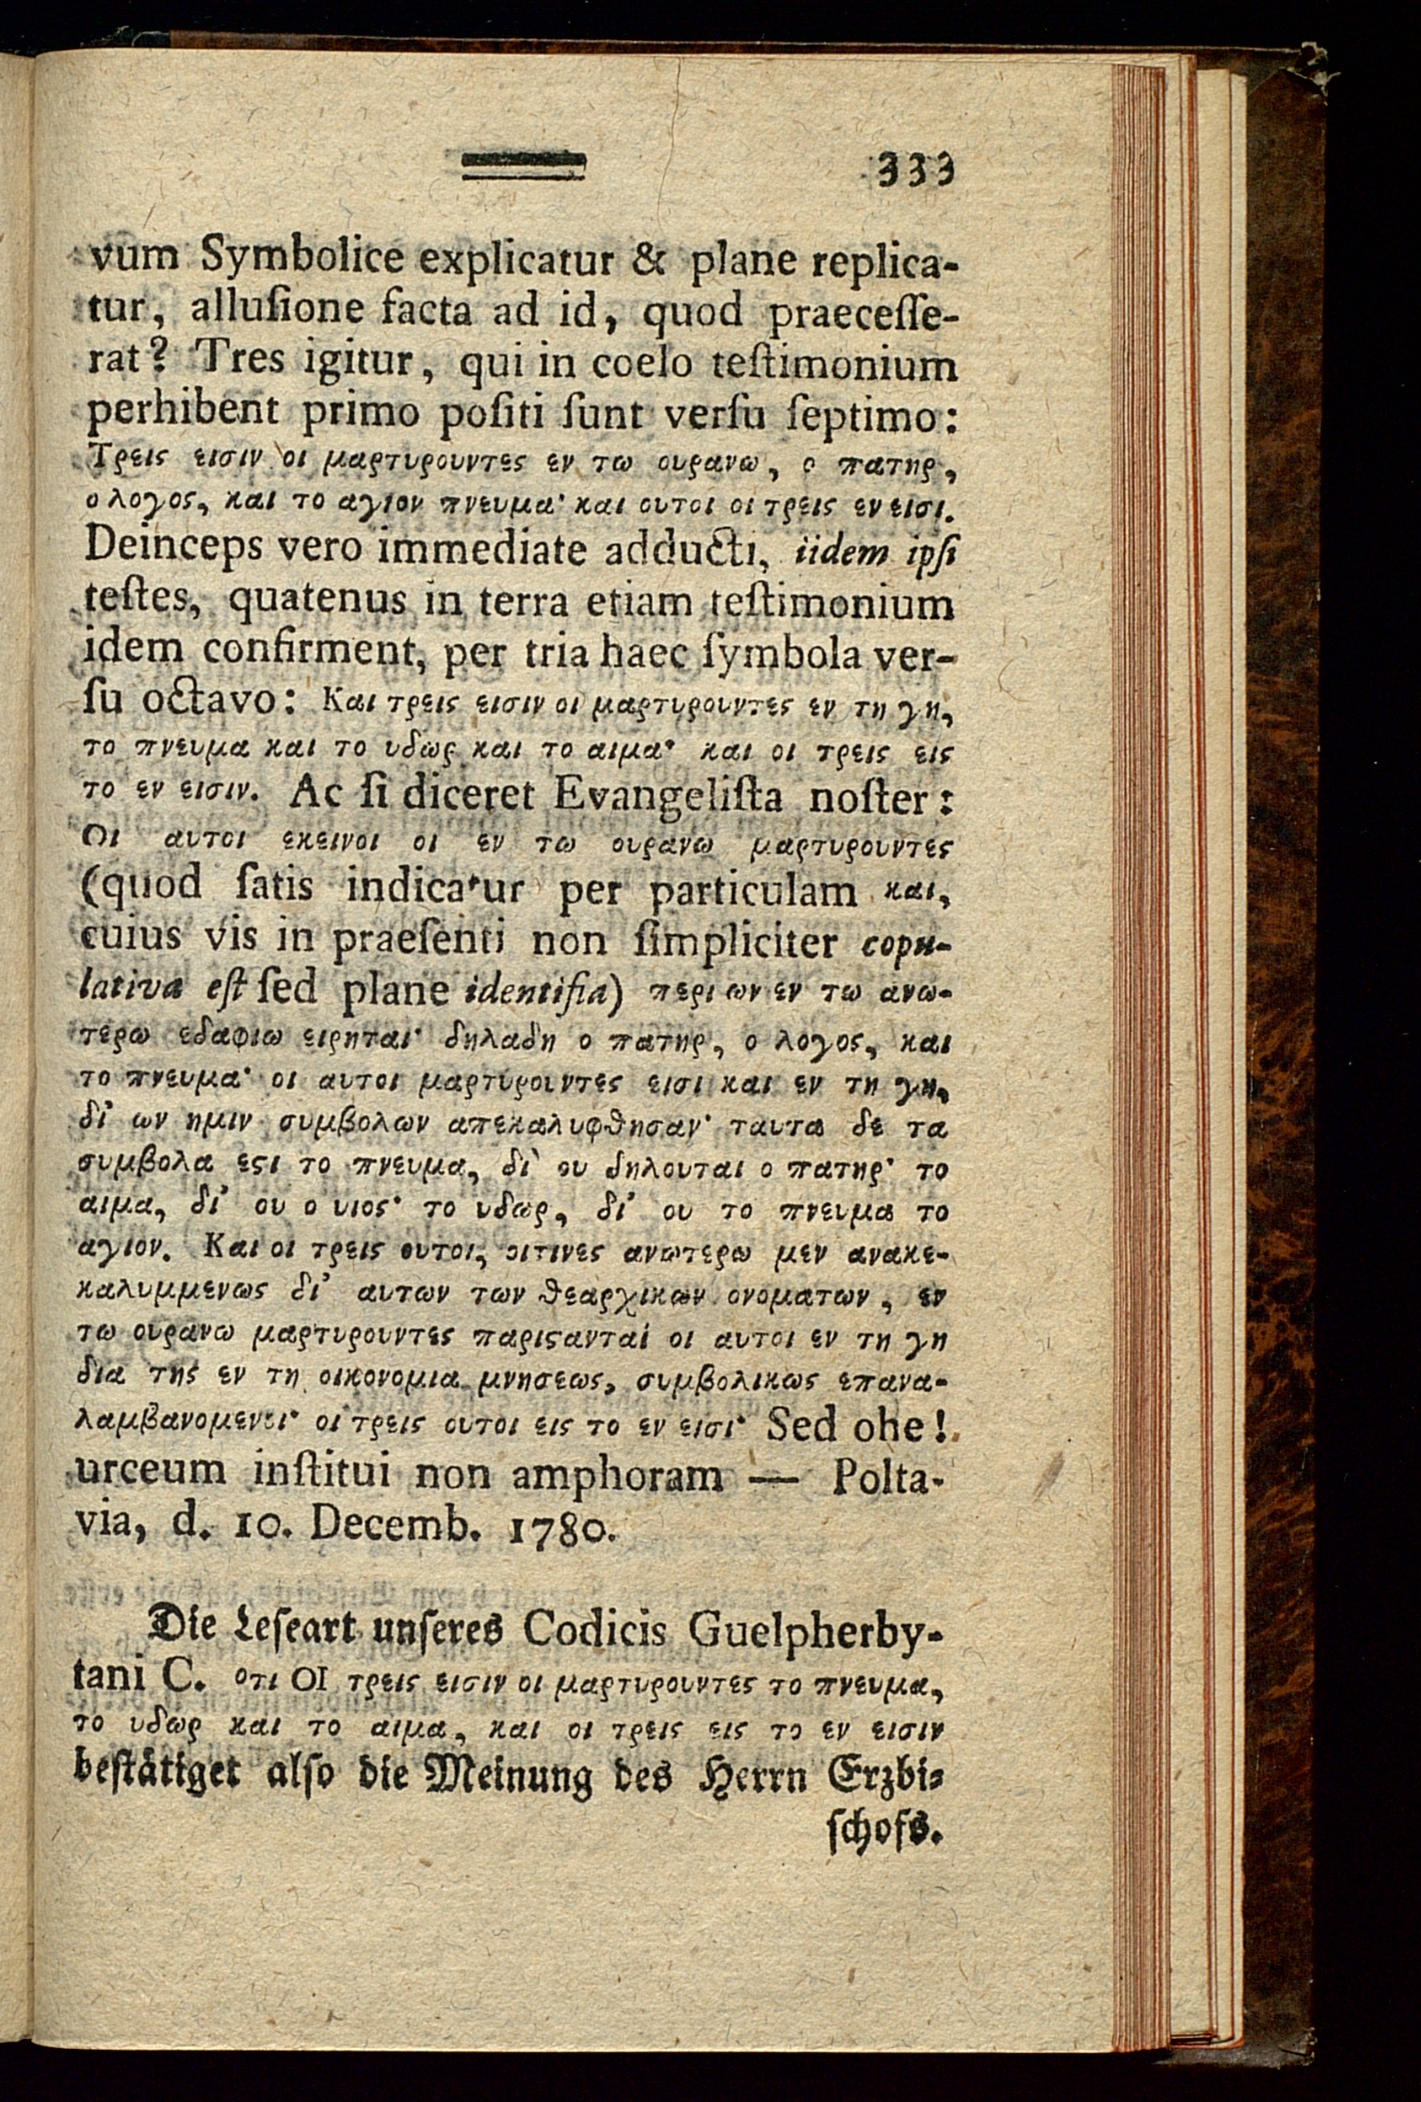 333
vum Symbolice explicatur & plane replica-
tur, alluſione facta ad id, quod praeceſſe-
rat? Tres igitur, qui in coelo teſtimonium
perhibent primo poſiti ſunt verſu ſeptimo:
Τρεις εισιν οι μαρτυρουντες εν τω ουρανω, ο πατηρ,
ο λογος, και το αγιον πνευμα· και ουτοι οι τρεις εν εισι.
Deinceps vero immediate adducti, iidem ipſi
teſtes, quatenus in terra etiam teſtimonium
idem confirment, per tria haec ſymbola ver-
ſu octavo: Και τρεις εισιν οι μαρτυρουντες εν τη γη,
το πνευμα και το υδωρ και το αιμα· και οι τρεις εις
το εν εισιν. Ac ſi diceret Evangeliſta noſter:
Οι αυτοι εκεινοι οι εν τω ουρανω μαρτυρουντες
(quod ſatis indicatur per particulam και,
cuius vis in praeſenti non ſimpliciter copu-
lativa eſt ſed plane identifia) περι ων εν τω ανω-
τερω εδαφιω ειρηται· δηλαδη ο πατηρ, ο λογος, και
το πνευμα· οι αυτοι μαρτυρουντες εισι και εν τη γη,
δι' ων ημιν συμβολων απεκαλυφθησαν· ταυτα δε τα
συμβολα εϛι το πνευμα, δι' ου δηλουται ο πατηρ· το
αιμα, δι' ου ο υιος· το υδωρ, δι' ου το πνευμα το
αγιον. Και οι τρεις ουτοι, οιτινες ανωτερω μεν ανακε-
καλυμμενως δι' αυτων των θεαρχικων ονοματων, εν
τω ουρανω μαρτυρουντες παριϛανται οι αυτοι εν τη γη
δια της εν τη οικονομια μνησεως, συμβολικως επανα-
λαμβανομενοι· οι τρεις ουτοι εις το εν εισι· Sed ohe!
urceum inſtitui non amphoram — Polta-
via, d. 10. Decemb. 1780.
Die Leſeart unſeres Codicis Guelpherby-
tani C. οτι ΟΙ τρεις εισιν οι μαρτυρουντες το πνευμα,
το υδωρ και το αιμα, και οι τρεις εις το εν εισιν
beſtätiget alſo die Meinung des Herrn Erzbi-
ſchofs.